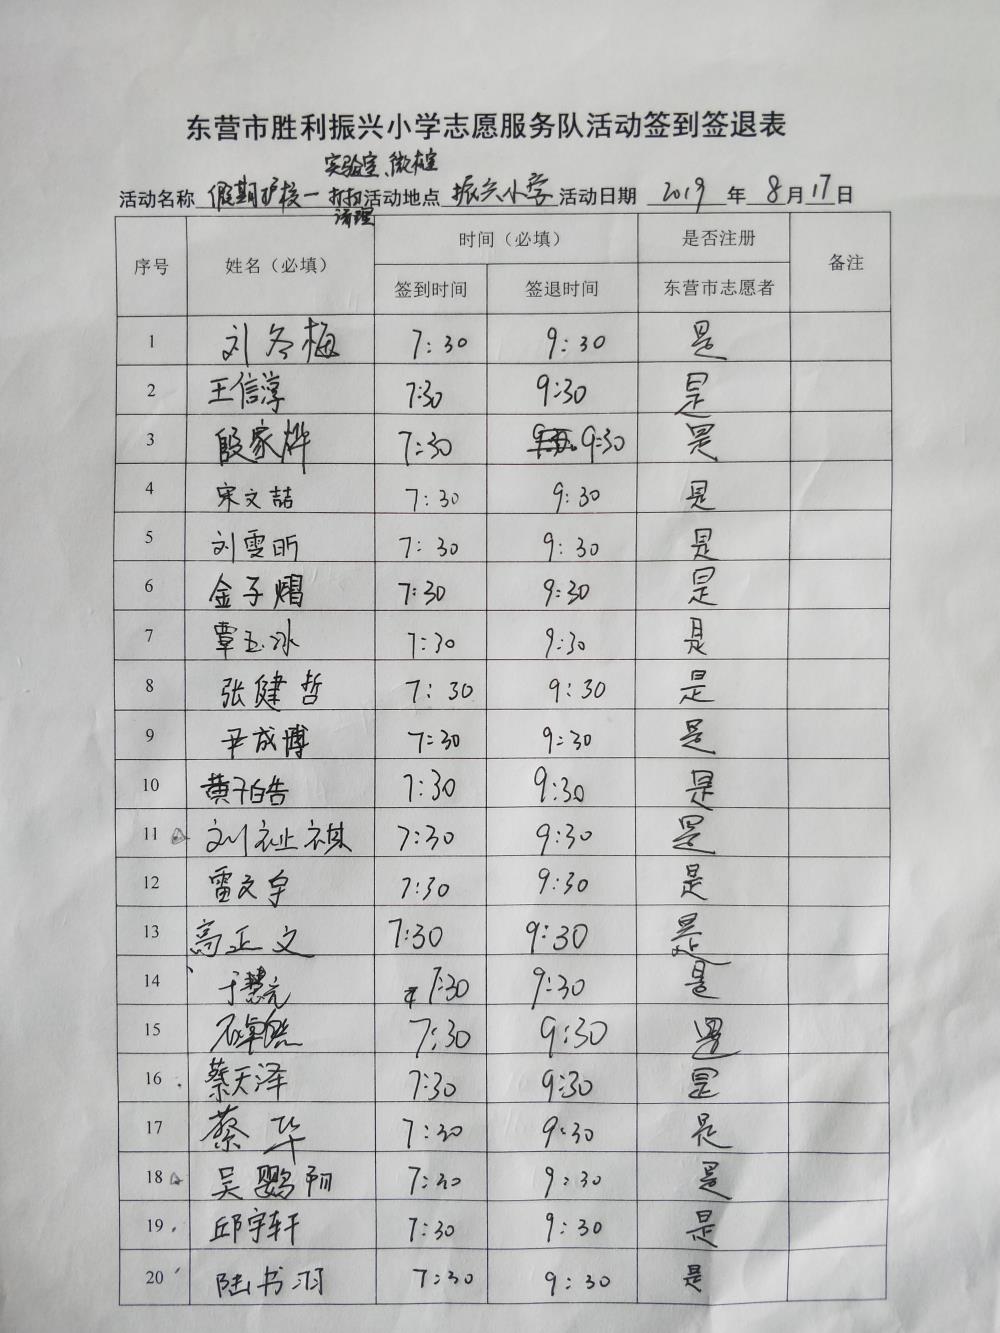 东营市胜利振兴小学志愿服务队活动签到签退表
实验室、微机室
活动名称 假期护校一打扫 活动地点 振兴小学 活动日期 2019 年 8 月 17 日
清理
时间（必填） 是否注册
序号 姓名（必填） 备注
签到时间 签退时间 东营市志愿者
1 刘冬梅 7:30 9:30 是
2 王信淳 7:30 9:30 是
3 段家桦 7:30 9:30 是
4 宋文喆 7:30 9:30 是
5 刘雯昕 7:30 9:30 是
6 金子熠 7:30 9:30 是
7 覃玉冰 7:30 9:30 是
8 张健哲 7:30 9:30 是
9 尹成博 7:30 9:30 是
10 黄子皓 7:30 9:30 是
11 刘祉祺 7:30 9:30 是
12 雷文宇 7:30 9:30 是
13 高正文 7:30 9:30 是
14 于慧元 7:30 9:30 是
15 7:30 9:30 是
16 蔡天泽 7:30 9:30 是
17 蔡华 7:30 9:30 是
18 吴鹦翔 7:30 9:30 是
19 邱宇轩 7:30 9:30 是
20 陆书羽 7:30 9:30 是